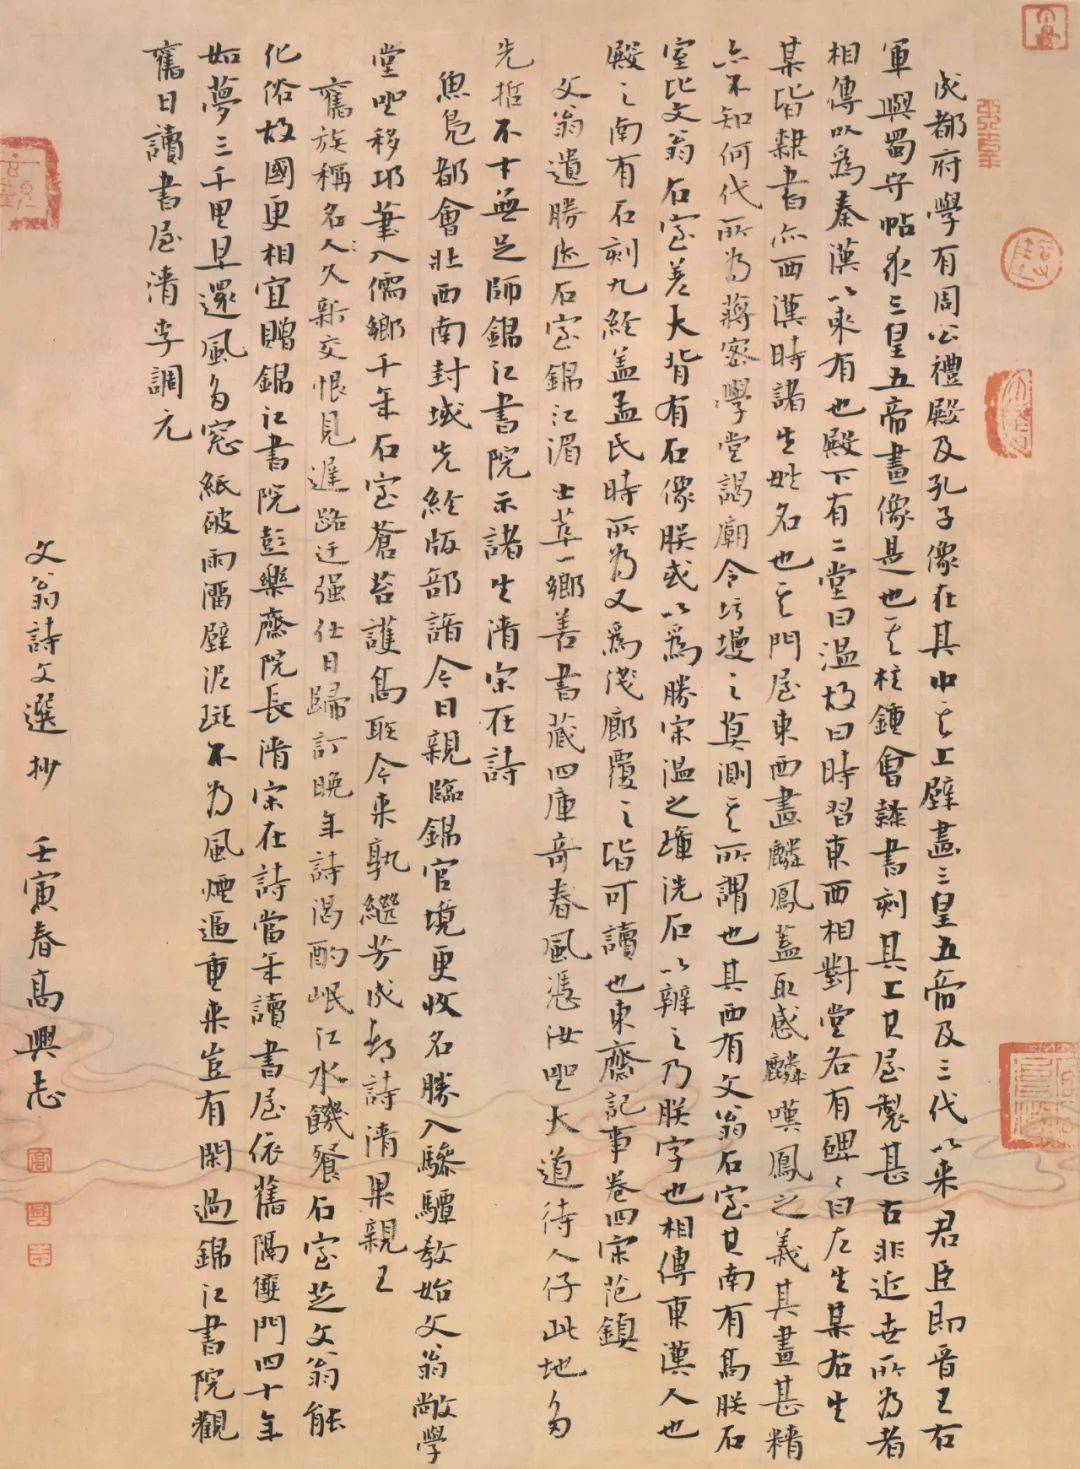 成都府學有周公禮殿及孔子像在其中其上壁畫三皇五帝及三代以来君臣即晉王右
軍與蜀守帖求三皇五帝畫像是也其柱鍾會隸書刻其上其屋製甚古非近世所為者
相傳以爲秦漢以来有也殿下有二堂曰温故曰時習東西相對堂各有碑碑曰左生某右生
某皆隸書亦西漢時諸生姓名也其門屋東西畫麟鳳蓋取感麟嘆鳳之義其畫甚精
亦不知何代所为蔣密學堂謁廟令圬墁之莫測其所謂也其西有文翁石室其南有高朕石
室比文翁石室差大背有石像朕或以爲勝宋温之璋洗石以辨之乃朕字也相傳東漢人也
殿之南有石刻九經盖孟氏時所为又爲淺廊覆之皆可讀也東齋記事卷四宋范鎮
文翁遺勝迹石室錦江湄士萃一鄉善書藏四庫奇春風憑汝吹大道待人仔此地多
先哲不才無足師錦江書院示諸生清宋在詩
魚凫都會壯西南封域先經版部諳今日親臨錦官境更收名勝入驂驔教始文翁敞學
堂吹移邛筆入儒鄉千年石室蒼苔護爲延今来孰繼芳成都詩清果親王
舊族稱名人久新交恨見遲路迂强仕日歸訂晚年詩渴酌岷江水饑餐石室芝文翁能
化俗故國更相宜贈錦江書院彭樂齋院長清宋在詩當年讀書屋依舊隔雙門四十年
如夢三千里早還風多窓紙破雨漏壁泥斑不为風煙逼重来豈有閑過錦江書院觀
舊日讀書屋清李調元
文翁詩文選抄　壬寅春高興志